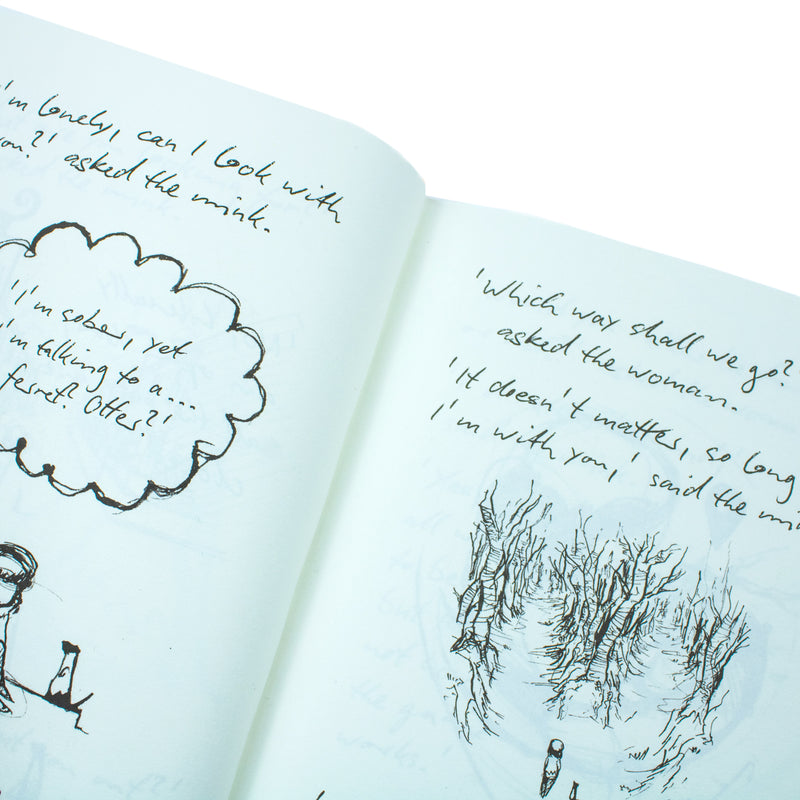 'm lonely, can I look with
you?' asked the mink.
'I'm sober, yet
I'm talking to a...
ferret? Otter?'
'Which way shall we go?'
asked the woman.
'It doesn't matter, so long
I'm with you,' said the mink